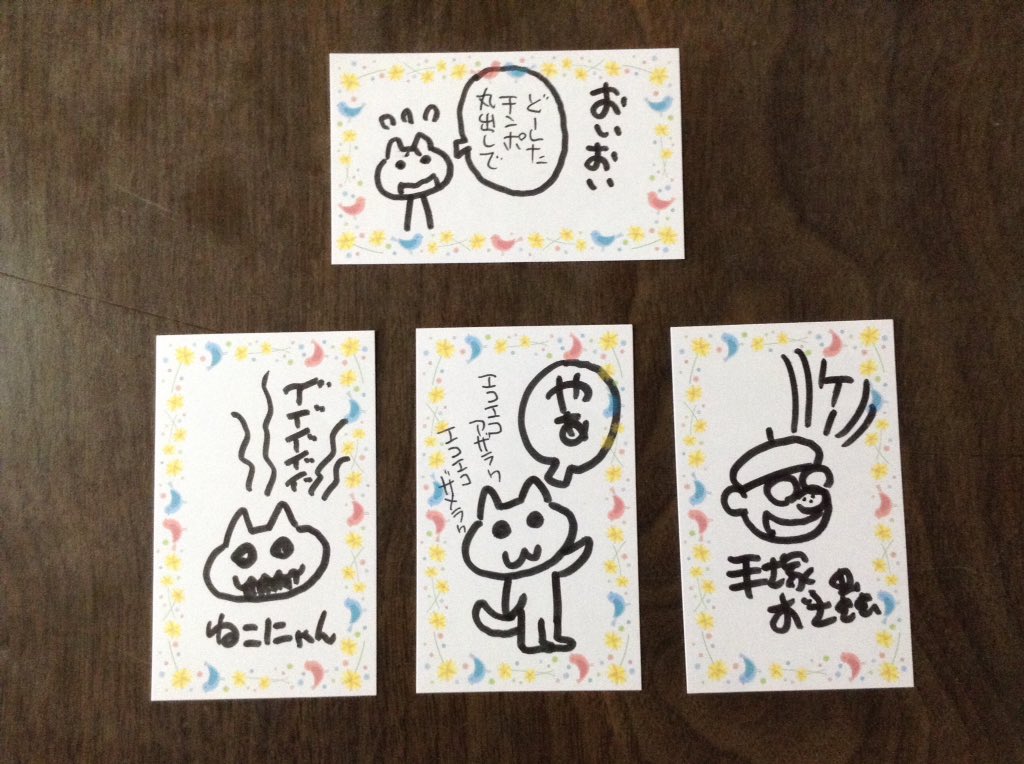 おいおい
どーした
チンポ
丸出しで
ねこにゃん
やぁ
エコエコ
アザラク
エコエコ
ザメラク
手塚